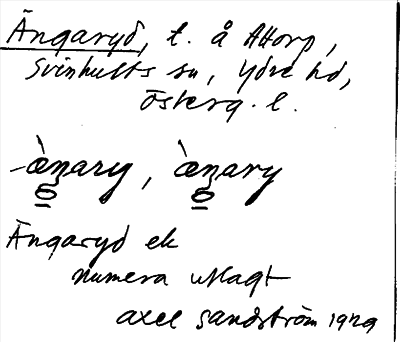 Ängaryd, t. å Attorp,
Svinhults sn, Ydre hd,
Österg. l.
-ày̨ary, ày̨ary
Ängaryd ek
numera utlagt
Axel Sandström 1929